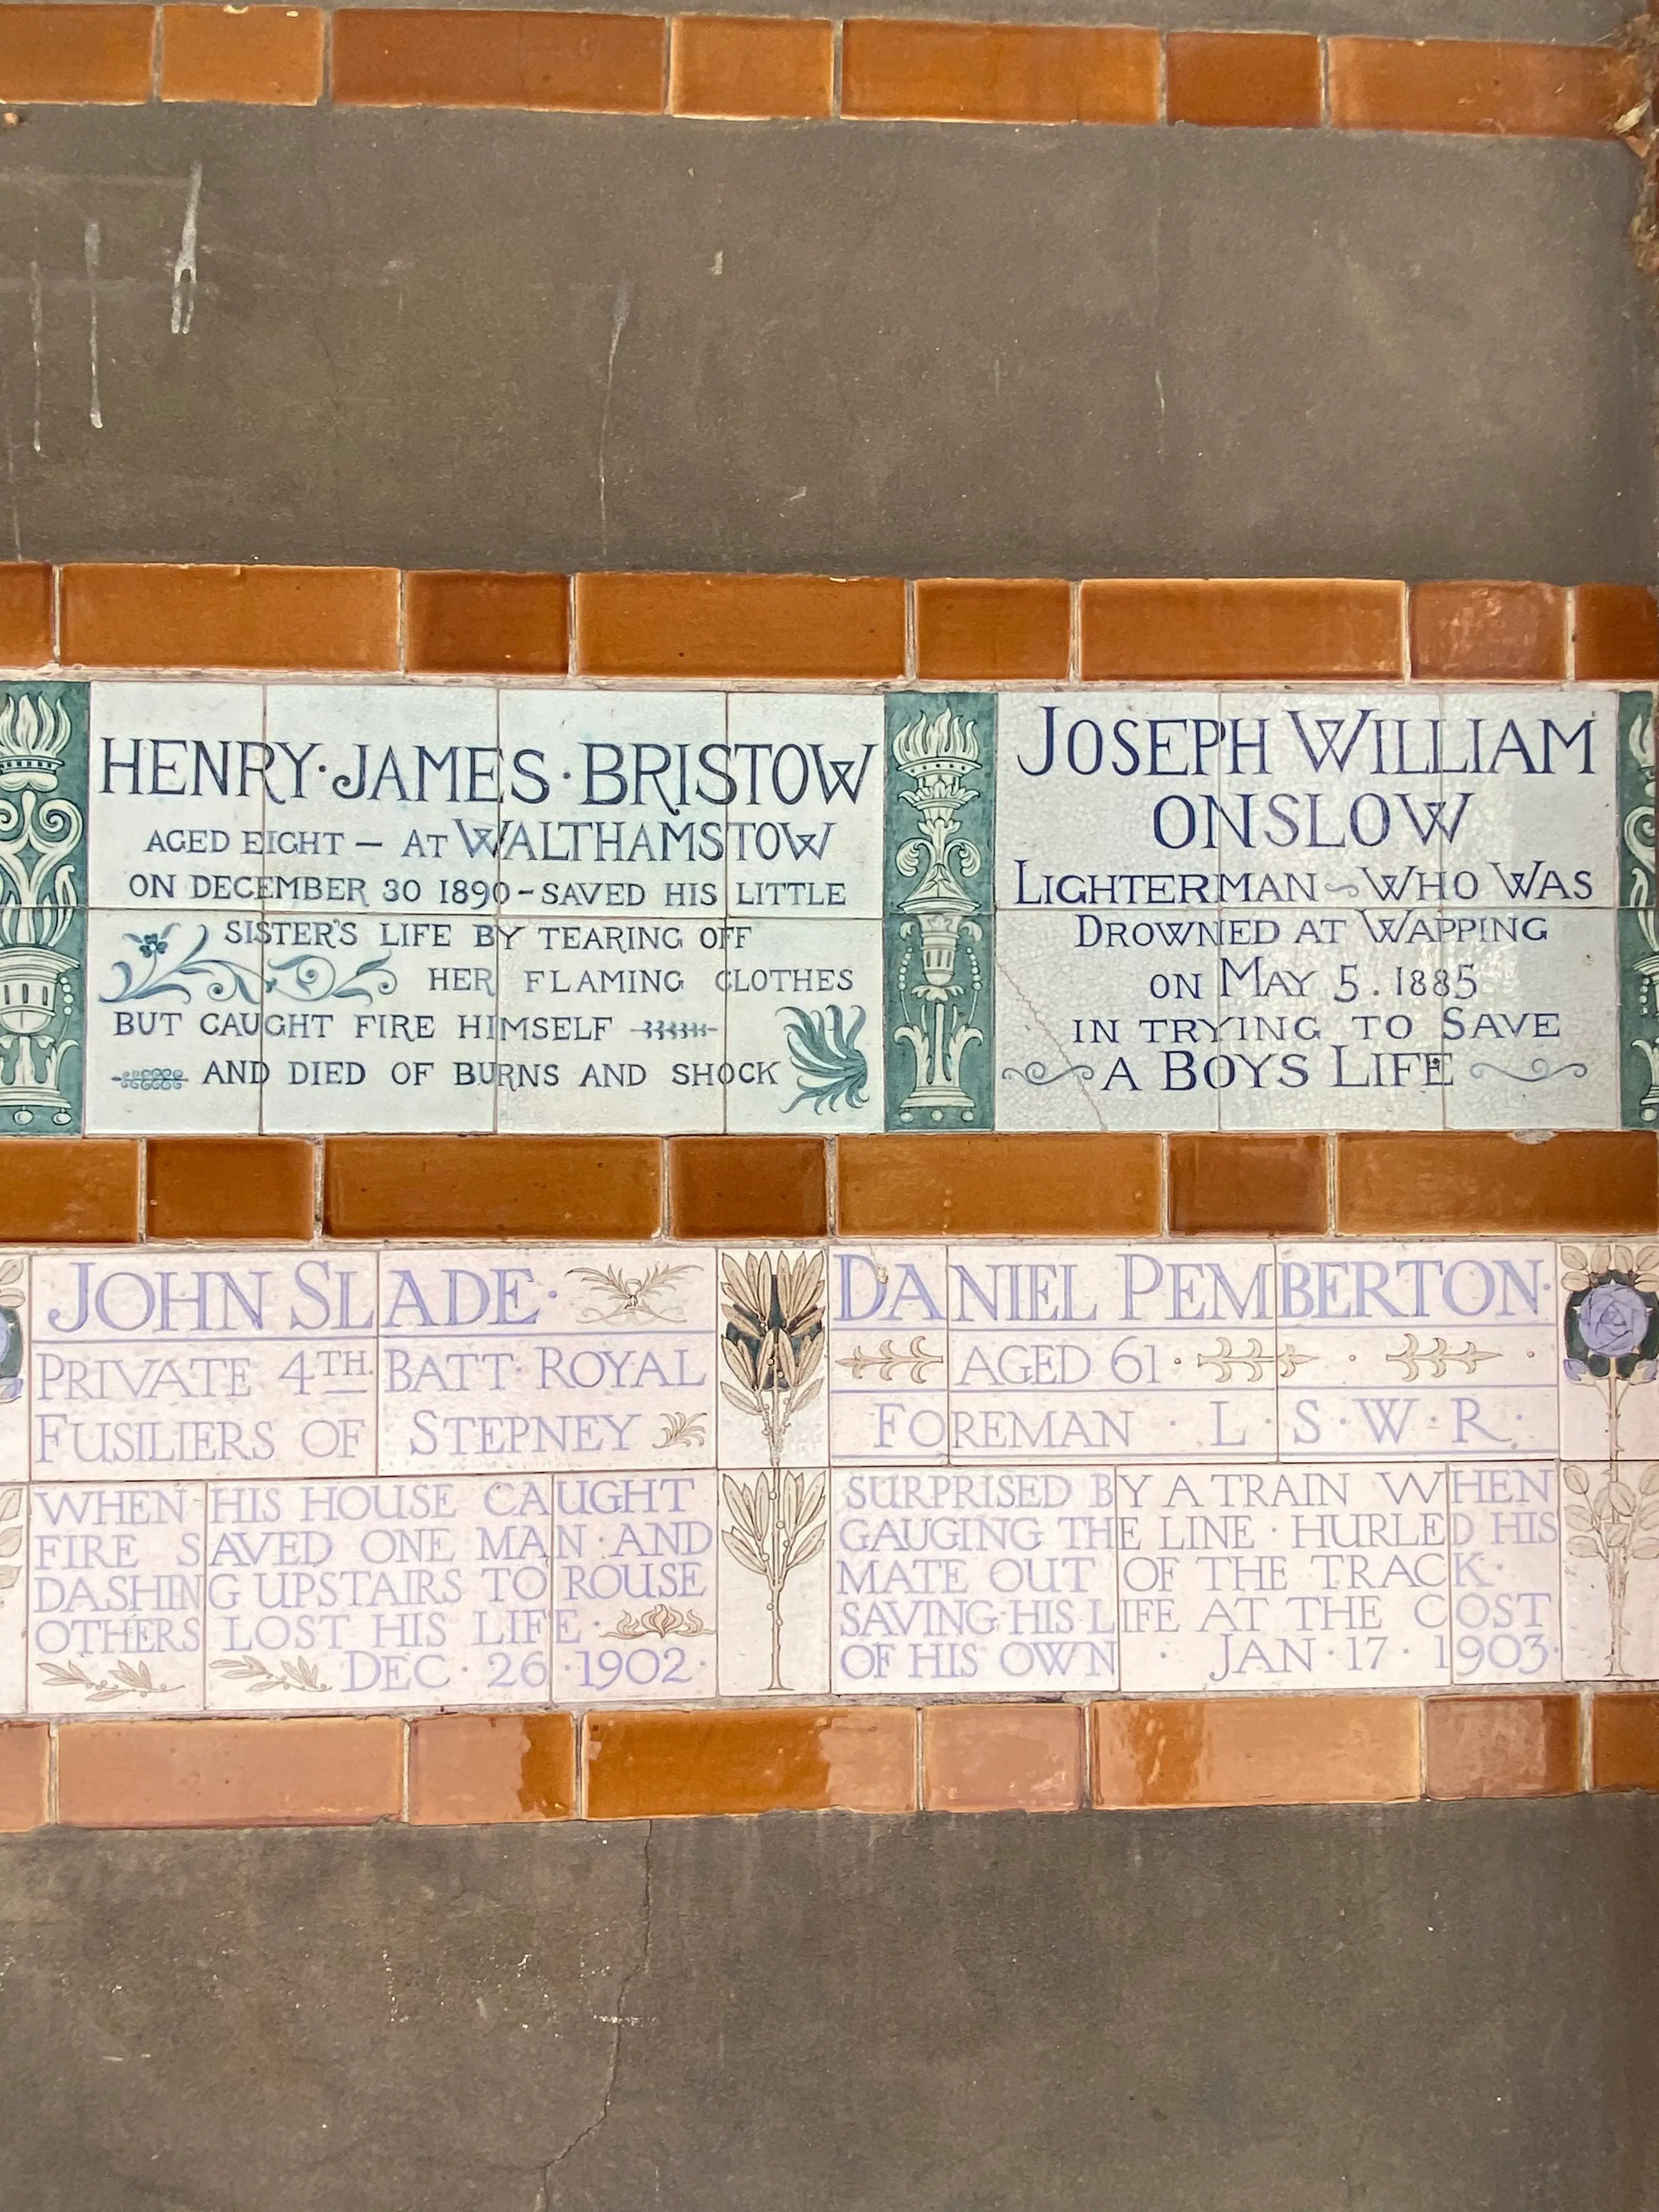 HENRY·JAMES·BRISTOW
AGED EIGHT — AT WALTHAMSTOW
ON DECEMBER 30 1890 - SAVED HIS LITTLE
SISTER'S LIFE BY TEARING OFF
HER FLAMING CLOTHES
BUT CAUGHT FIRE HIMSELF
AND DIED OF BURNS AND SHOCK
JOSEPH WILLIAM
ONSLOW
LIGHTERMAN ~ WHO WAS
DROWNED AT WAPPING
ON MAY 5. 1885
IN TRYING TO SAVE
A BOYS LIFE
JOHN SLADE·
PRIVATE 4TH. BATT· ROYAL
FUSILIERS OF STEPNEY
WHEN HIS HOUSE CAUGHT
FIRE SAVED ONE MAN · AND
DASHING UPSTAIRS TO ROUSE
OTHERS LOST HIS LIFE ·
DEC · 26 · 1902 ·
DANIEL PEMBERTON·
AGED 61 ·
FOREMAN · L · S · W · R ·
SURPRISED BY A TRAIN WHEN
GAUGING THE LINE · HURLED HIS
MATE OUT OF THE TRACK ·
SAVING HIS LIFE AT THE COST
OF HIS OWN · JAN · 17 · 1903 ·